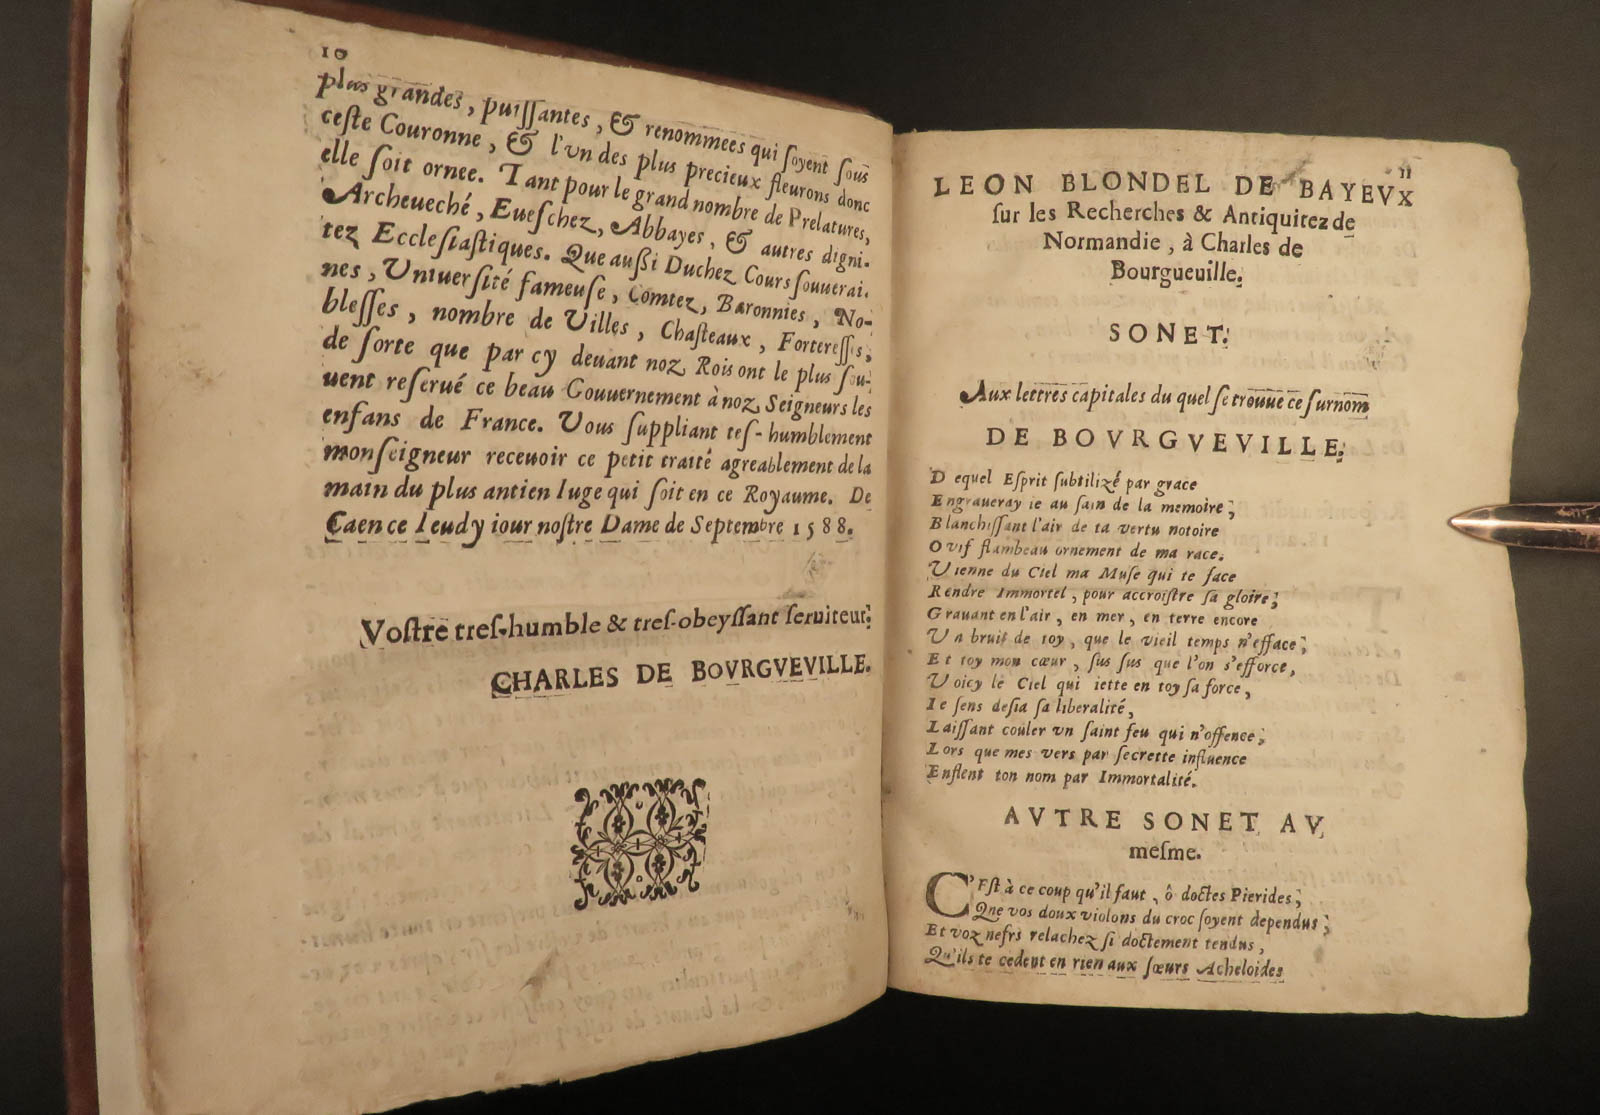 10
plus grandes, puissantes, & renommees qui soyent sous
ceste Couronne, & l'vn des plus precieux fleurons donc
elle soit ornee. Tant pour le grand nombre de Prelatures,
Archeueché, Eueschez, Abbayes, & autres digni-
tez Ecclesiastiques. Que aussi Duchez Cours souuerai-
nes, Vniuersité fameuse, Comtez, Baronnies, No-
blesses, nombre de Villes, Chasteaux, Forteresses;
de sorte que par cy deuant noz Rois ont le plus sou-
uent reserué ce beau Gouuernement à noz Seigneurs les
enfans de France. Vous suppliant tes-humblement
monseigneur receuoir ce petit traité agreablement de la
main du plus antien Iuge qui soit en ce Royaume. De
Caen ce Ieudy iour nostre Dame de Septembre 1588.
Vostre tres-humble & tres-obeyssant seruiteur:
CHARLES DE BOVRGVEVILLE.
11
LEON BLONDEL DE BAYEVX
sur les Recherches & Antiquitez de
Normandie, à Charles de
Bourgueuille.
SONET.
Aux lettres capitales du quel se trouue ce surnom
DE BOVRGVEVILLE.
D equel Esprit subtilizé par grace
Engraueray ie au sain de la memoire;
Blanchissant l'air de ta vertu notoire
O vif flambeau ornement de ma race.
Vienne du Ciel ma Muse qui te face
Rendre Immortel, pour accroistre sa gloire;
Grauant en l'air, en mer, en terre encore
Vn bruit de toy, que le vieil temps n'efface;
Et toy mon cœur, sus sus que l'on s'efforce,
Voicy le Ciel qui iette en toy sa force,
Ie sens desia sa liberalité,
Laissant couler vn saint feu qui n'offence;
Lors que mes vers par secrette influence
Enflent ton nom par Immortalité.
AVTRE SONET AV
mesme.
C'Est à ce coup qu'il faut, ô doctes Pierides;
Qne vos doux violons du croc soyent dependus;
Et voz nefrs relachez si doctement tendus,
Qu'ils te cedent en rien aux sœurs Acheloides